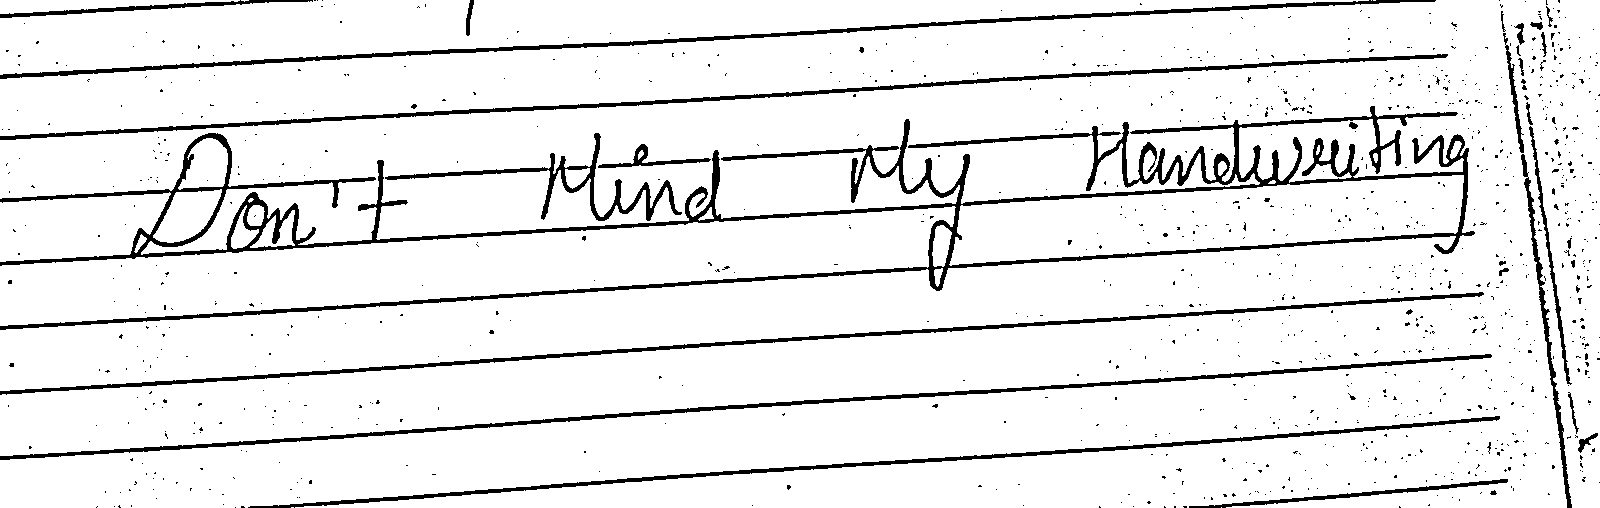 Don't Mind My Handwriting